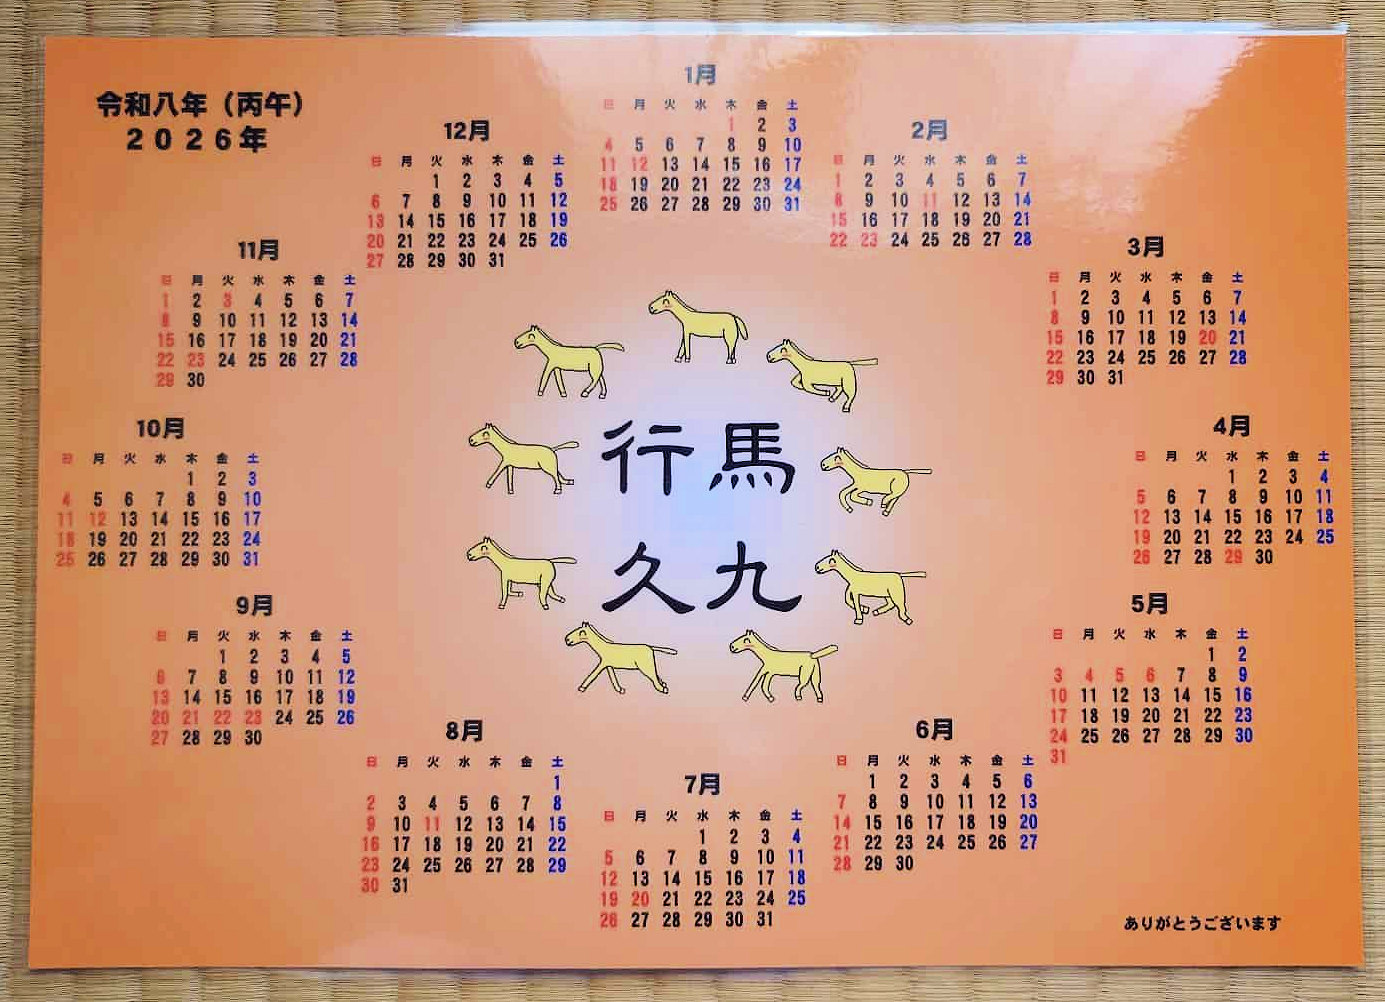 令和八年（丙午）
２０２６年
1月
日 月 火 水 木 金 土
1 2 3
4 5 6 7 8 9 10
11 12 13 14 15 16 17
18 19 20 21 22 23 24
25 26 27 28 29 30 31
2月
日 月 火 水 木 金 土
1 2 3 4 5 6 7
8 9 10 11 12 13 14
15 16 17 18 19 20 21
22 23 24 25 26 27 28
3月
日 月 火 水 木 金 土
1 2 3 4 5 6 7
8 9 10 11 12 13 14
15 16 17 18 19 20 21
22 23 24 25 26 27 28
29 30 31
4月
日 月 火 水 木 金 土
1 2 3 4
5 6 7 8 9 10 11
12 13 14 15 16 17 18
19 20 21 22 23 24 25
26 27 28 29 30
5月
日 月 火 水 木 金 土
1 2
3 4 5 6 7 8 9
10 11 12 13 14 15 16
17 18 19 20 21 22 23
24 25 26 27 28 29 30
31
6月
日 月 火 水 木 金 土
1 2 3 4 5 6
7 8 9 10 11 12 13
14 15 16 17 18 19 20
21 22 23 24 25 26 27
28 29 30
7月
日 月 火 水 木 金 土
1 2 3 4
5 6 7 8 9 10 11
12 13 14 15 16 17 18
19 20 21 22 23 24 25
26 27 28 29 30 31
8月
日 月 火 水 木 金 土
1
2 3 4 5 6 7 8
9 10 11 12 13 14 15
16 17 18 19 20 21 22
23 24 25 26 27 28 29
30 31
9月
日 月 火 水 木 金 土
1 2 3 4 5
6 7 8 9 10 11 12
13 14 15 16 17 18 19
20 21 22 23 24 25 26
27 28 29 30
10月
日 月 火 水 木 金 土
1 2 3
4 5 6 7 8 9 10
11 12 13 14 15 16 17
18 19 20 21 22 23 24
25 26 27 28 29 30 31
11月
日 月 火 水 木 金 土
1 2 3 4 5 6 7
8 9 10 11 12 13 14
15 16 17 18 19 20 21
22 23 24 25 26 27 28
29 30
12月
日 月 火 水 木 金 土
1 2 3 4 5
6 7 8 9 10 11 12
13 14 15 16 17 18 19
20 21 22 23 24 25 26
27 28 29 30 31
馬九
行久
ありがとうございます